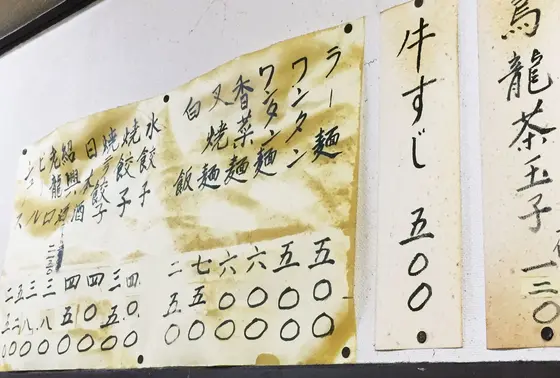 烏龍茶玉子 一二〇
牛すじ 五〇〇
ラー麺 五〇〇
ワンタン 五〇〇
ワンタン麺 六〇〇
香菜麺 六〇〇
叉焼麺 七五〇
白飯 二五〇
水餃子 四〇〇
焼餃子 三五〇
餃子 四〇〇
日本酒 四五〇
紹興酒 三八〇
三八〇
五二〇
二五〇